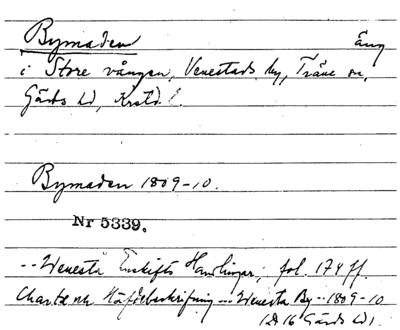 Bymaden äng
i Store vången, Venestads by, Träne sn,
Gärds hd, Krstd. l.
Bymaden 1809-10.
Nr 5339.
--Wenesta Enskifts Handlingar, fol. 174 ff.
Charta och Häfdebeskrifning --- Wenesta By -- 1809-10
(D 16 Gärds hd).